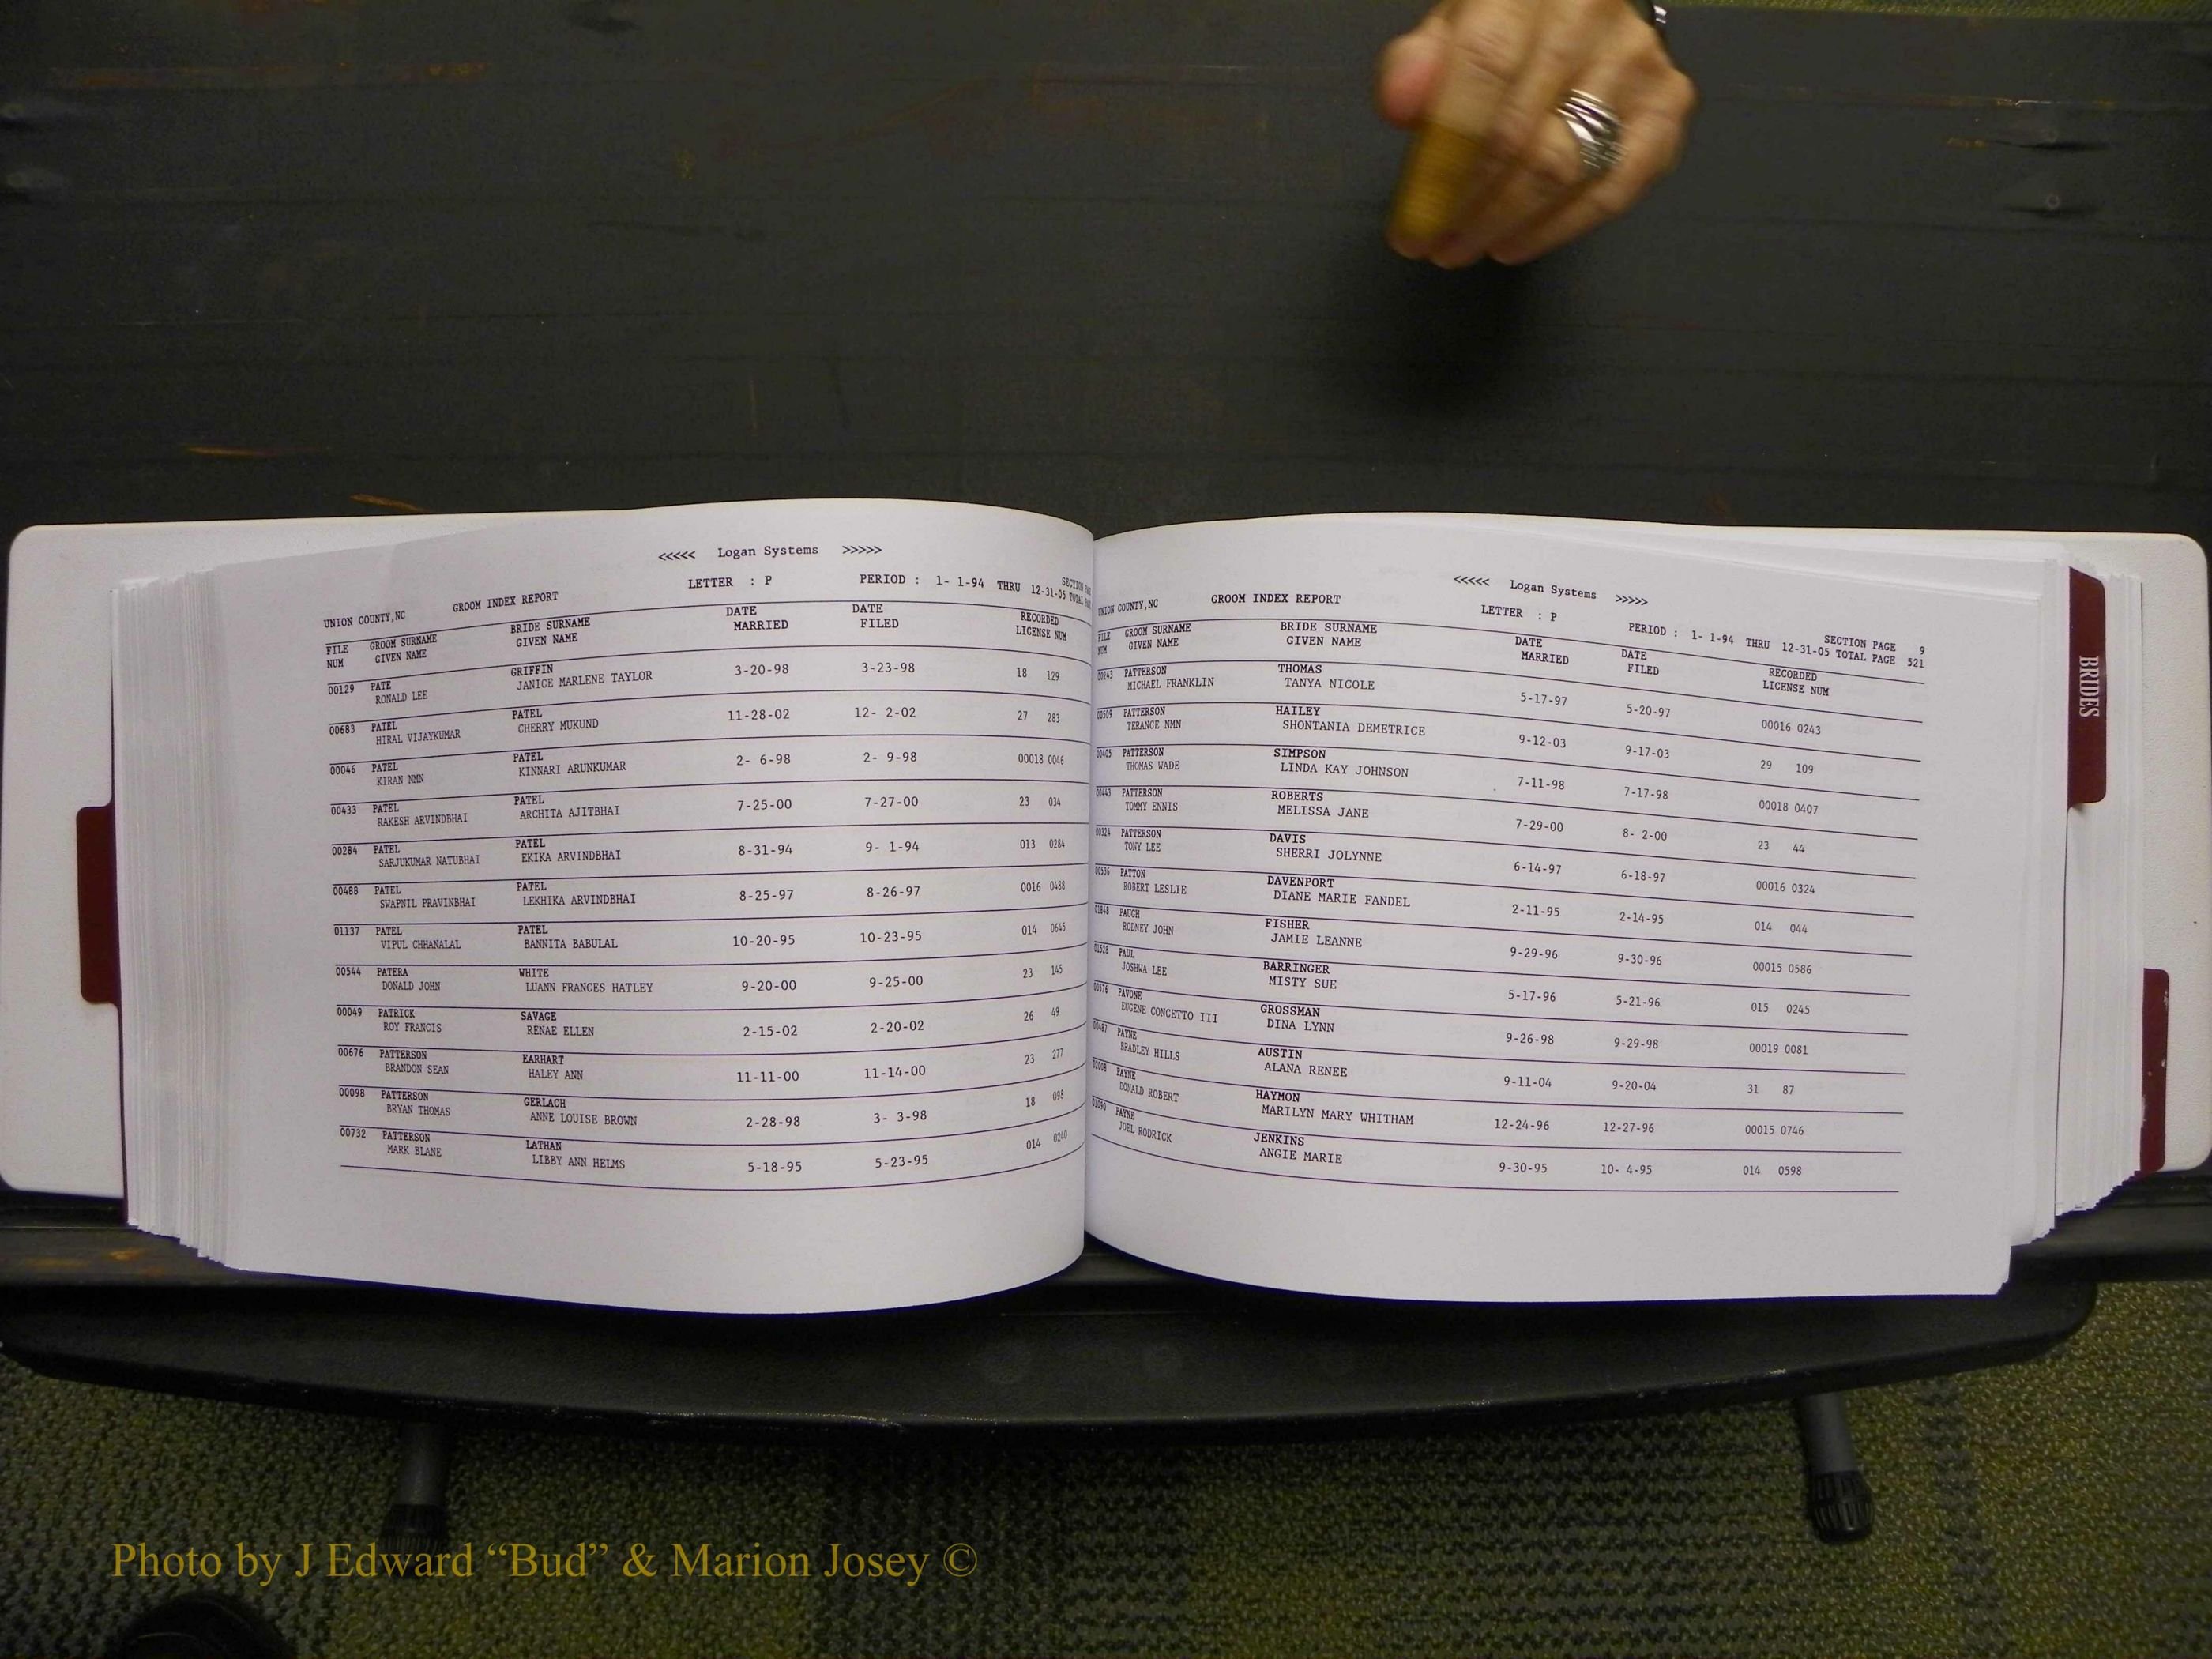 <<<<< Logan Systems >>>>>
UNION COUNTY,NC GROOM INDEX REPORT LETTER : P PERIOD : 1- 1-94 THRU 12-31-05
FILE NUM GROOM SURNAME GIVEN NAME BRIDE SURNAME GIVEN NAME DATE MARRIED DATE FILED RECORDED LICENSE NUM
00129 PATE GRIFFIN 3-20-98 3-23-98 18 129
RONALD LEE JANICE MARLENE TAYLOR
00683 PATEL PATEL 11-28-02 12- 2-02 27 283
HIRAL VIJAYKUMAR CHERRY MUKUND
00046 PATEL PATEL 2- 6-98 2- 9-98 00018 0046
KIRAN NMN KINNARI ARUNKUMAR
00433 PATEL PATEL 7-25-00 7-27-00 23 034
RAKESH ARVINDBHAI ARCHITA AJITBHAI
00284 PATEL PATEL 8-31-94 9- 1-94 013 0284
SARJUKUMAR NATUBHAI EKIKA ARVINDBHAI
00488 PATEL PATEL 8-25-97 8-26-97 0016 0488
SWAPNIL PRAVINBHAI LEKHIKA ARVINDBHAI
01137 PATEL PATEL 10-20-95 10-23-95 014 0645
VIPUL CHHANALAL BANNITA BABULAL
00544 PATERA WHITE 9-20-00 9-25-00 23 145
DONALD JOHN LUANN FRANCES HATLEY
00049 PATRICK SAVAGE 2-15-02 2-20-02 26 49
ROY FRANCIS RENAE ELLEN
00676 PATTERSON EARHART 11-11-00 11-14-00 23 277
BRANDON SEAN HALEY ANN
00098 PATTERSON GERLACH 2-28-98 3- 3-98 18 098
BRYAN THOMAS ANNE LOUISE BROWN
00732 PATTERSON LATHAN 5-18-95 5-23-95 014 0240
MARK BLANE LIBBY ANN HELMS
<<<<< Logan Systems >>>>>
UNION COUNTY,NC GROOM INDEX REPORT LETTER : P SECTION PAGE 9
PERIOD : 1- 1-94 THRU 12-31-05 TOTAL PAGE 521
FILE NUM GROOM SURNAME GIVEN NAME BRIDE SURNAME GIVEN NAME DATE MARRIED DATE FILED RECORDED LICENSE NUM
00243 PATTERSON THOMAS 5-17-97 5-20-97 00016 0243
MICHAEL FRANKLIN TANYA NICOLE
00509 PATTERSON HAILEY 9-12-03 9-17-03 29 109
TERANCE NMN SHONTANIA DEMETRICE
00405 PATTERSON SIMPSON 7-11-98 7-17-98 00018 0407
THOMAS WADE LINDA KAY JOHNSON
00443 PATTERSON ROBERTS 7-29-00 8- 2-00 23 44
TOMMY ENNIS MELISSA JANE
00324 PATTERSON DAVIS 6-14-97 6-18-97 00016 0324
TONY LEE SHERRI JOLYNNE
00536 PATTON DAVENPORT 2-11-95 2-14-95 014 044
ROBERT LESLIE DIANE MARIE FANDEL
01848 PAUGH FISHER 9-29-96 9-30-96 00015 0586
RODNEY JOHN JAMIE LEANNE
01528 PAUL BARRINGER 5-17-96 5-21-96 015 0245
JOSHWA LEE MISTY SUE
00576 PAVONE GROSSMAN 9-26-98 9-29-98 00019 0081
EUGENE CONCETTO III DINA LYNN
00487 PAYNE AUSTIN 9-11-04 9-20-04 31 87
BRADLEY HILLS ALANA RENEE
02008 PAYNE HAYMON 12-24-96 12-27-96 00015 0746
DONALD ROBERT MARILYN MARY WHITHAM
01090 PAYNE JENKINS 9-30-95 10- 4-95 014 0598
JOEL RODRICK ANGIE MARIE
BRIDES
Photo by J Edward “Bud” & Marion Josey ©